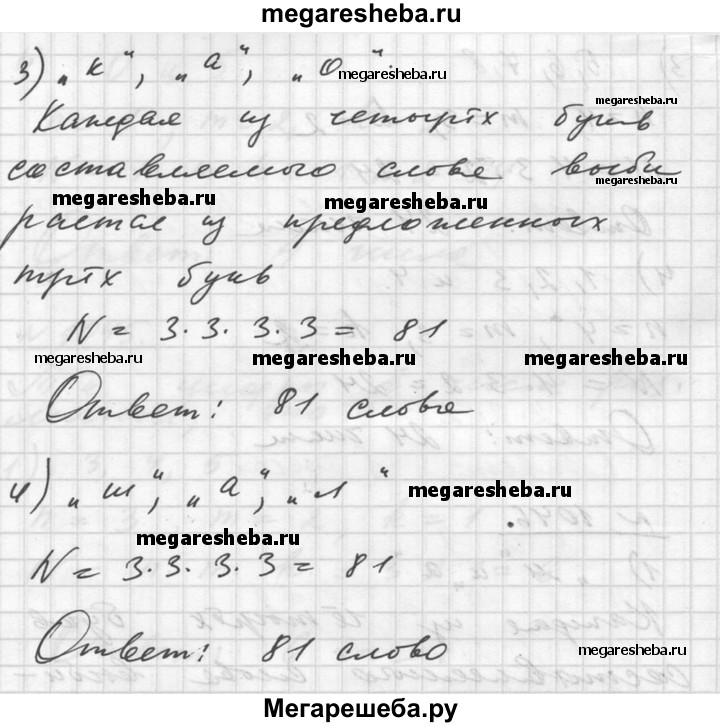 megaresheba.ru
3) „к“, „а“, „о“.
megaresheba.ru
Каждая из четырёх букв
megaresheba.ru
составляемого слова выби
megaresheba.ru
megaresheba.ru megaresheba.ru
рается из предложенных
трёх букв
N = 3·3·3·3 = 81
megaresheba.ru megaresheba.ru megaresheba.ru
Ответ: 81 слово
4) „ш“, „а“, „л“
megaresheba.ru
megaresheba.ru
N = 3·3·3·3 = 81
Ответ: 81 слово
megaresheba.ru
Мегарешеба.ру